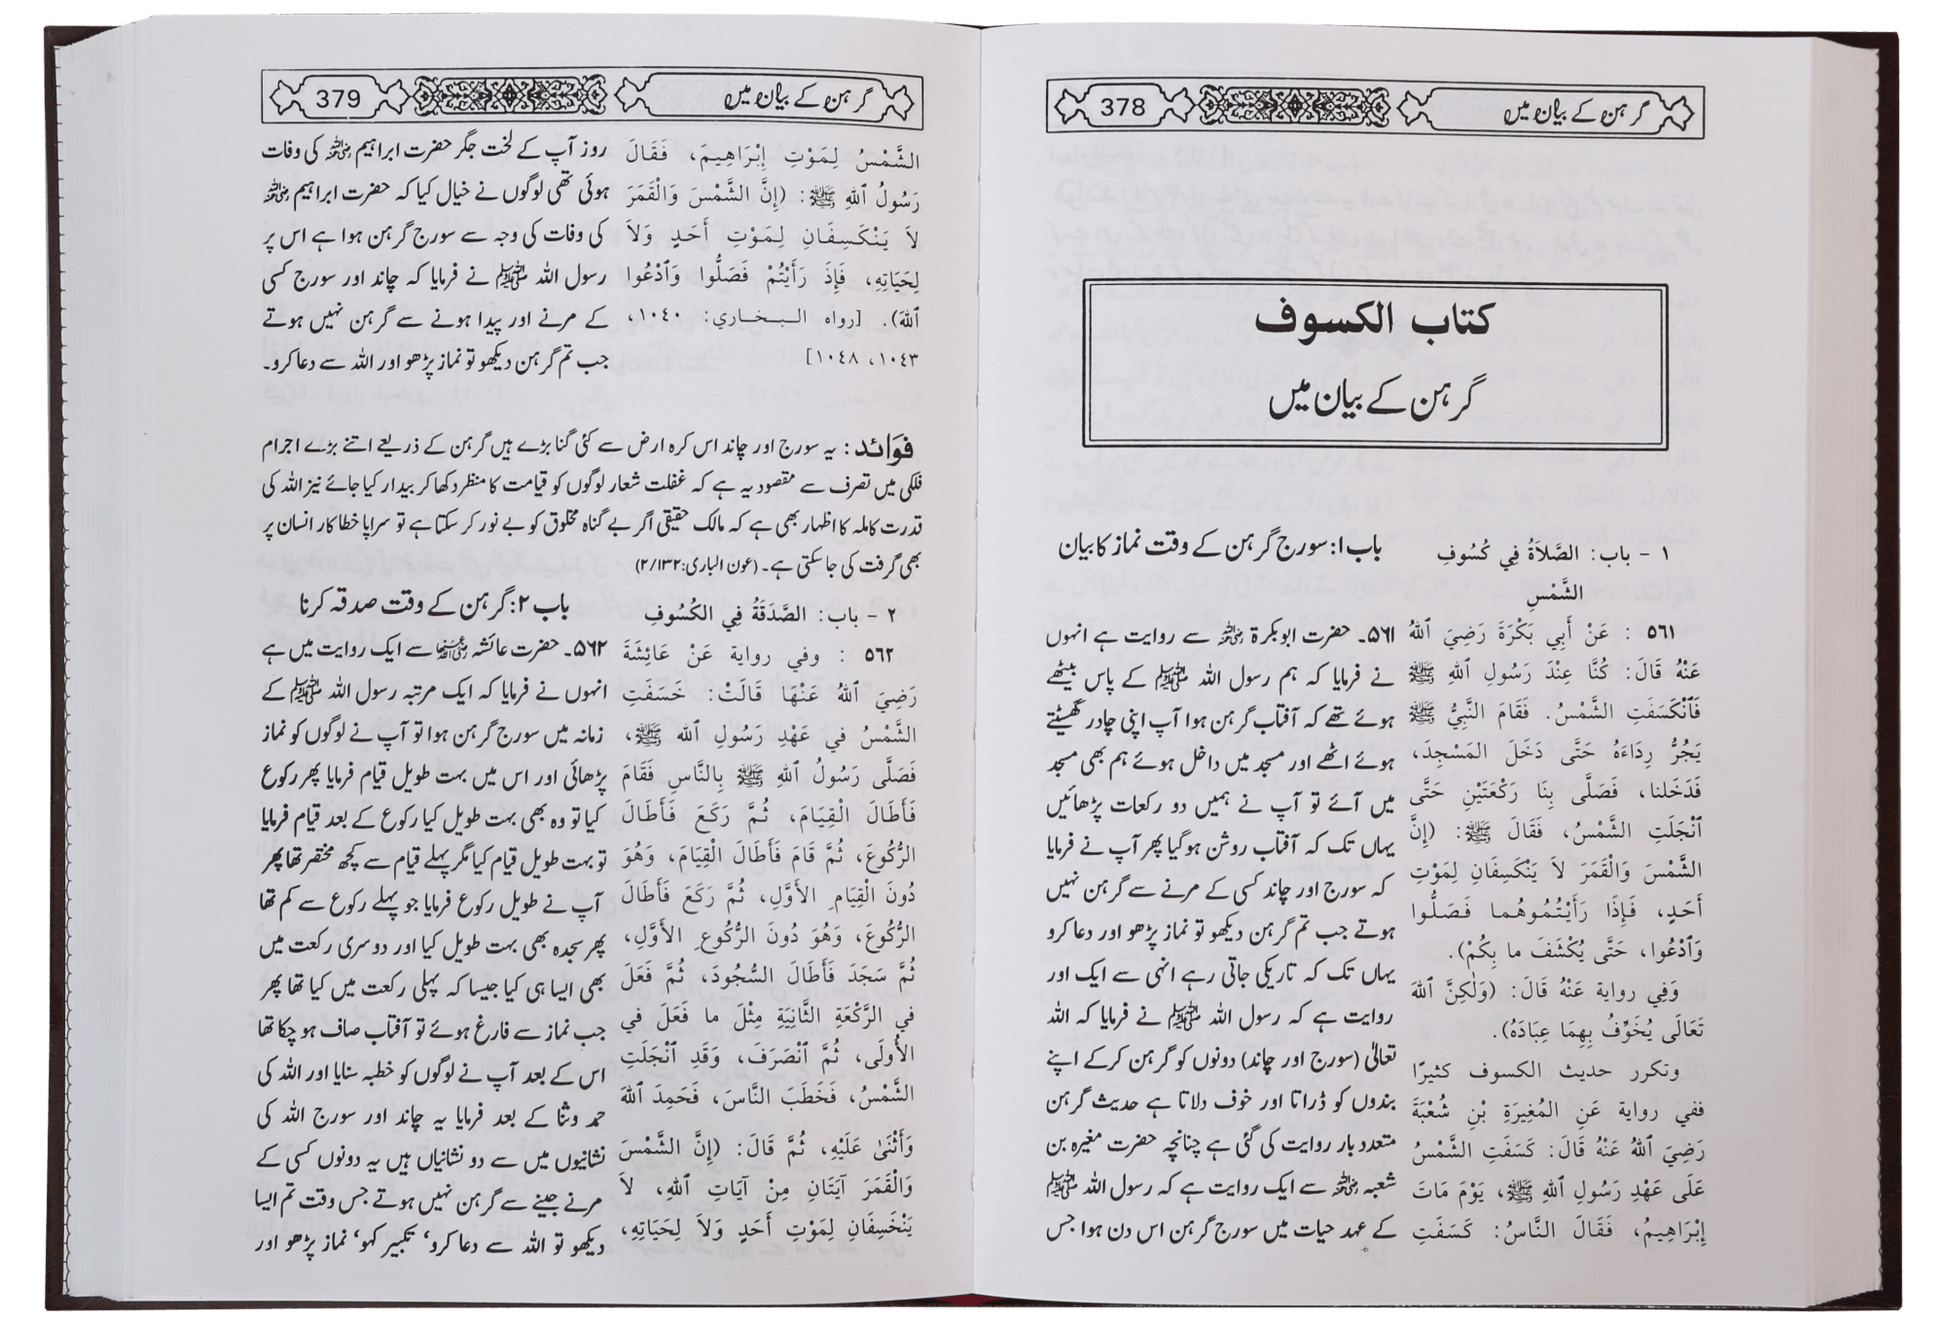 گرہن کے بیان میں
378
كتاب الكسوف
گرہن کے بیان میں
١ - باب: الصَّلاَةُ فِي كُسُوفِ
الشَّمْسِ
٥٦١ : عَنْ أَبِي بَكْرَةَ رَضِيَ ٱللهُ
عَنْهُ قَالَ: كُنَّا عِنْدَ رَسُولِ ٱللهِ ﷺ
فَٱنْكَسَفَتِ الشَّمْسُ. فَقَامَ النَّبِيُّ ﷺ
يَجُرُّ رِدَاءَهُ حَتَّى دَخَلَ المَسْجِدَ،
فَدَخَلنا، فَصَلَّى بِنَا رَكْعَتَيْنِ حَتَّى
ٱنْجَلَتِ الشَّمْسُ، فَقَالَ ﷺ: (إِنَّ
الشَّمْسَ وَالْقَمَرَ لاَ يَنْكَسِفَانِ لِمَوْتِ
أَحَدٍ، فَإِذَا رَأَيْتُمُوهُما فَصَلُّوا
وَٱدْعُوا، حَتَّى يُكْشَفَ ما بِكُمْ).
وَفِي رواية عَنْهُ قَالَ: (وَلٰكِنَّ ٱللهَ
تَعَالَى يُخَوِّفُ بِهِمَا عِبَادَهُ).
وتكرر حديث الكسوف كثيرًا
ففي رواية عَنِ المُغِيَرَةِ بْنِ شُعْبَةَ
رَضِيَ ٱللهُ عَنْهُ قَالَ: كَسَفَتِ الشَّمْسُ
عَلَى عَهْدِ رَسُولِ ٱللهِ ﷺ، يَوْمَ مَاتَ
إِبْرَاهِيمُ، فَقَالَ النَّاسُ: كَسَفَتِ
باب ۱: سورج گرہن کے وقت نماز کا بیان
۵۶۱۔ حضرت ابوبکرۃ رضی اللہ عنہ سے روایت ہے انہوں
نے فرمایا کہ ہم رسول اللہ ﷺ کے پاس بیٹھے
ہوئے تھے کہ آفتاب گرہن ہوا آپ اپنی چادر گھسیٹتے
ہوئے اٹھے اور مسجد میں داخل ہوئے ہم بھی مسجد
میں آئے تو آپ نے ہمیں دو رکعات پڑھائیں
یہاں تک کہ آفتاب روشن ہوگیا پھر آپ نے فرمایا
کہ سورج اور چاند کسی کے مرنے سے گرہن نہیں
ہوتے جب تم گرہن دیکھو تو نماز پڑھو اور دعا کرو
یہاں تک کہ تاریکی جاتی رہے انہی سے ایک اور
روایت ہے کہ رسول اللہ ﷺ نے فرمایا کہ اللہ
تعالیٰ (سورج اور چاند) دونوں کو گرہن کرکے اپنے
بندوں کو ڈراتا اور خوف دلاتا ہے حدیث گرہن
متعدد بار روایت کی گئی ہے چنانچہ حضرت مغیرہ بن
شعبہ رضی اللہ عنہ سے ایک روایت ہے کہ رسول اللہ ﷺ
کے عہد حیات میں سورج گرہن اس دن ہوا جس
گرہن کے بیان میں
379
الشَّمْسُ لِمَوْتِ إِبْرَاهِيمَ، فَقَالَ
رَسُولُ ٱللهِ ﷺ: (إِنَّ الشَّمْسَ وَالْقَمَرَ
لاَ يَنْكَسِفَانِ لِمَوْتِ أَحَدٍ وَلاَ
لِحَيَاتِهِ، فَإِذَ رَأَيْتُمْ فَصَلُّوا وَٱدْعُوا
ٱللهَ). [رواه البخاري: ١٠٤٠،
١٠٤٣، ١٠٤٨]
روز آپ کے لخت جگر حضرت ابراہیم رضی اللہ عنہ کی وفات
ہوئی تھی لوگوں نے خیال کیا کہ حضرت ابراہیم رضی اللہ عنہ
کی وفات کی وجہ سے سورج گرہن ہوا ہے اس پر
رسول اللہ ﷺ نے فرمایا کہ چاند اور سورج کسی
کے مرنے اور پیدا ہونے سے گرہن نہیں ہوتے
جب تم گرہن دیکھو تو نماز پڑھو اور اللہ سے دعا کرو۔
فوَائد: یہ سورج اور چاند اس کرہ ارض سے کئی گنا بڑے ہیں گرہن کے ذریعے اتنے بڑے اجرام
فلکی میں تصرف سے مقصود یہ ہے کہ غفلت شعار لوگوں کو قیامت کا منظر دکھا کر بیدار کیا جائے نیز اللہ کی
قدرت کاملہ کا اظہار بھی ہے کہ مالک حقیقی اگر بے گناہ مخلوق کو بے نور کر سکتا ہے تو سراپا خطا کار انسان پر
بھی گرفت کی جاسکتی ہے۔ (عون الباری:۲/۱۳۲)
٢ - باب: الصَّدَقَةُ فِي الكُسُوفِ
٥٦٢ : وفي رواية عَنْ عَائِشَةَ
رَضِيَ ٱللهُ عَنْهَا قَالَتْ: خَسَفَتِ
الشَّمْسُ في عَهْدِ رَسُولِ ٱلله ﷺ،
فَصَلَّى رَسُولُ ٱللهِ ﷺ بِالنَّاسِ فَقَامَ
فَأَطَالَ الْقِيَامَ، ثُمَّ رَكَعَ فَأَطَالَ
الرُّكُوعَ، ثُمَّ قَامَ فَأَطَالَ الْقِيَامَ، وَهُوَ
دُونَ الْقِيَامِ الأَوَّلِ، ثُمَّ رَكَعَ فَأَطَالَ
الرُّكُوعَ، وَهُوَ دُونَ الرُّكُوعِ الأَوَّلِ،
ثُمَّ سَجَدَ فَأَطَالَ السُّجُودَ، ثُمَّ فَعَلَ
في الرَّكْعَةِ الثَّانِيَةِ مِثْلَ ما فَعَلَ في
الأُولَى، ثُمَّ ٱنْصَرَفَ، وَقَدِ ٱنْجَلَتِ
الشَّمْسُ، فَخَطَبَ النَّاسَ، فَحَمِدَ ٱللهَ
وَأَثْنَىٰ عَلَيْهِ، ثُمَّ قَالَ: (إِنَّ الشَّمْسَ
وَالْقَمَرَ آيَتَانِ مِنْ آيَاتِ ٱللهِ، لاَ
يَنْخَسِفَانِ لِمَوْتِ أَحَدٍ وَلاَ لِحَيَاتِهِ،
باب ۲: گرہن کے وقت صدقہ کرنا
۵۶۲۔ حضرت عائشہ رضی اللہ عنہا سے ایک روایت میں ہے
انہوں نے فرمایا کہ ایک مرتبہ رسول اللہ ﷺ کے
زمانہ میں سورج گرہن ہوا تو آپ نے لوگوں کو نماز
پڑھائی اور اس میں بہت طویل قیام فرمایا پھر رکوع
کیا تو وہ بھی بہت طویل کیا رکوع کے بعد قیام فرمایا
تو بہت طویل قیام کیا مگر پہلے قیام سے کچھ مختصر تھا پھر
آپ نے طویل رکوع فرمایا جو پہلے رکوع سے کم تھا
پھر سجدہ بھی بہت طویل کیا اور دوسری رکعت میں
بھی ایسا ہی کیا جیسا کہ پہلی رکعت میں کیا تھا پھر
جب نماز سے فارغ ہوئے تو آفتاب صاف ہو چکا تھا
اس کے بعد آپ نے لوگوں کو خطبہ سنایا اور اللہ کی
حمد وثنا کے بعد فرمایا یہ چاند اور سورج اللہ کی
نشانیوں میں سے دو نشانیاں ہیں یہ دونوں کسی کے
مرنے جینے سے گرہن نہیں ہوتے جس وقت تم ایسا
دیکھو تو اللہ سے دعا کرو، تکبیر کہو، نماز پڑھو اور